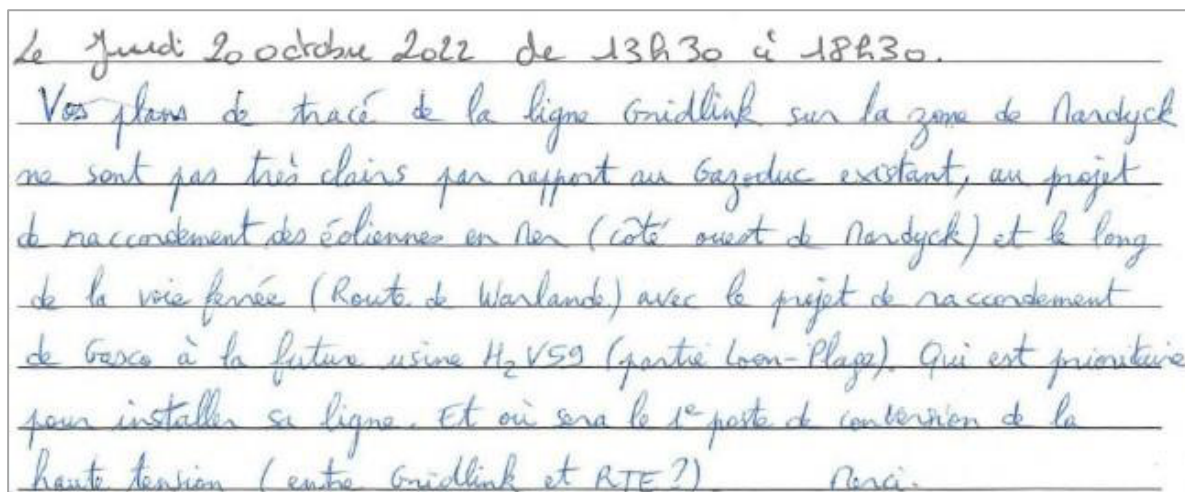 Le Jeudi 20 octobre 2022 de 13h30 à 18h30.
Vos plans de tracé de la ligne Gridlink sur la zone de Mardyck
ne sont pas très clairs par rapport au Gazoduc existant, au projet
de raccordement des éoliennes en Mer (côté ouest de Mardyck) et le long
de la voie ferrée (Route de Warlande) avec le projet de raccordement
de Gasco à la future usine H₂V59 (partie Loon-Plage). Qui est prioritaire
pour installer sa ligne. Et où sera le 1e poste de conversion de la
haute tension (entre Gridlink et RTE?) Merci.